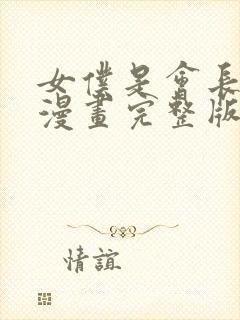 女僕是會長
漫畫完整版
情誼